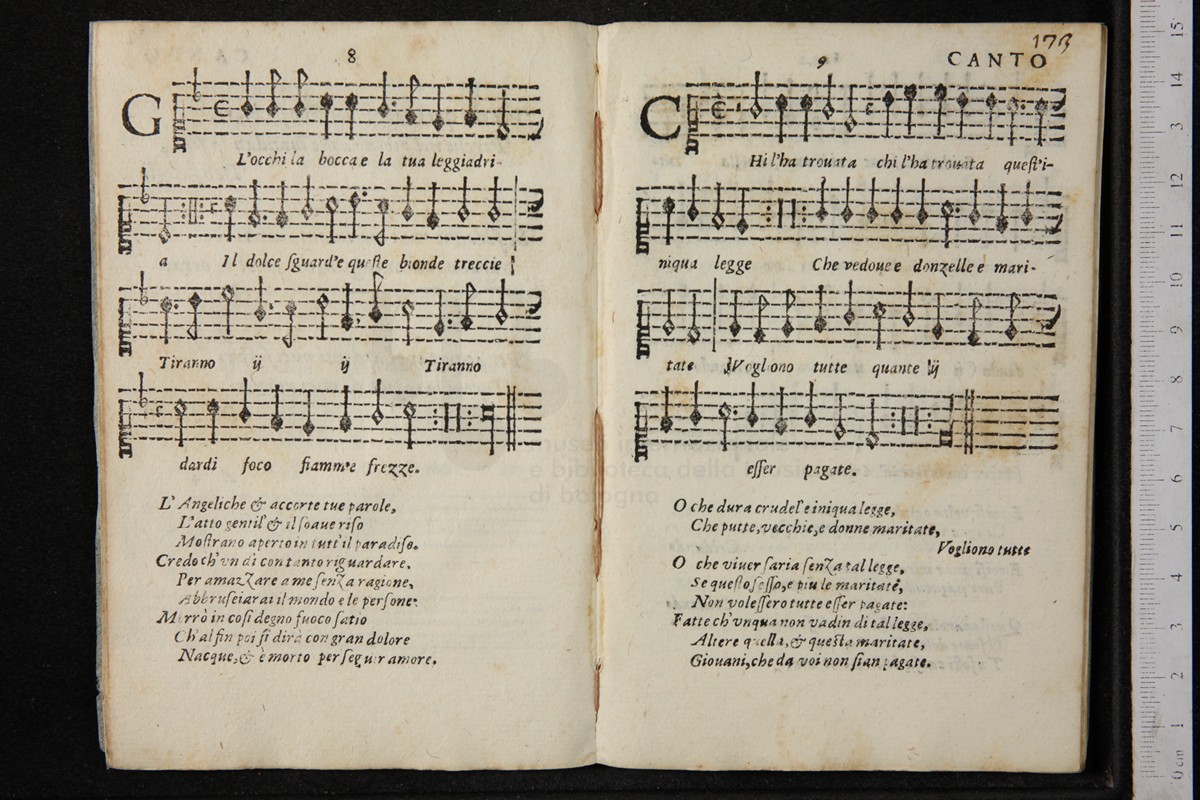 8
G
L'occhi la bocca e la tua leggiadri-
a Il dolce ſguard'e queſte bionde treccie
Tiranno ij ij Tiranno
dardi foco fiamm'e frezze.
L'Angeliche & accorte tue parole,
L'atto gentil' & il ſoaue riſo
Moſtrano aperto in tutt'il paradiſo.
Credo ch'vn di con tanto riguardare,
Per amazzare a me ſenza ragione,
Abbruſciarai il mondo e le perſone.
Morrò in coſi degno fuoco ſatio
Ch'al fin poi ſi dirà con gran dolore
Nacque, & è morto per ſeguir amore.
173
9 CANTO
C
Hi l'ha trouata chi l'ha trouata queſt'i-
niqua legge Che vedoue e donzelle e mari-
tate Vogliono tutte quante ij
eſſer pagate.
O che dura crudel' e iniqua legge,
Che putte, vecchie, e donne maritate,
Vogliono tutte
O che viuer ſaria ſenza tal legge,
Se queſto ſeſſo, e piu le maritate,
Non voleſſero tutte eſſer pagate:
Fatte ch'vnqua non vadin di tal legge,
Altere quella, & queſta maritate,
Giouani, che da voi non ſian pagate.
museo internazionale
e biblioteca della musica
di bologna
0 cm 1 2 3 4 5 6 7 8 9 10 11 12 13 14 15